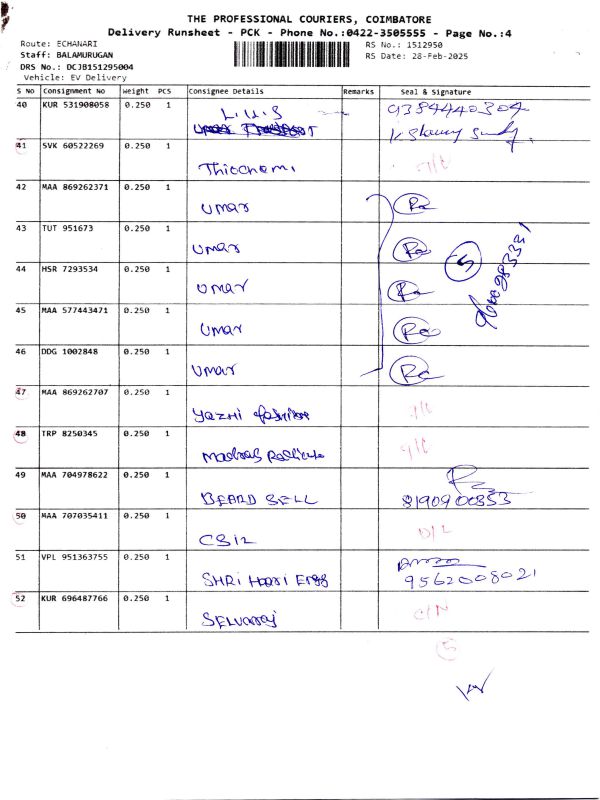 THE PROFESSIONAL COURIERS, COIMBATORE
Delivery Runsheet - PCK - Phone No.:0422-3505555 - Page No.:4
Route: ECHANARI
RS No.: 1512950
Staff: BALAMURUGAN
RS Date: 28-Feb-2025
DRS No.: DCJB151295004
Vehicle: EV Delivery
S No Consignment No Weight PCS Consignee Details Remarks Seal & Signature
40 KUR 531908058 0.250 1 9384440304
41 SVK 60522269 0.250 1
Thiochemi
42 MAA 869262371 0.250 1
umar
43 TUT 951673 0.250 1
umar
5
44 HSR 7293534 0.250 1
umar
45 MAA 577443471 0.250 1
umar
46 DDG 1002848 0.250 1
umar
47 MAA 869262707 0.250 1
Yazhi fashion
48 TRP 8250345 0.250 1
Madras
49 MAA 704978622 0.250 1
BEARD SELL 8190900353
50 MAA 707035411 0.250 1
D/L
51 VPL 951363755 0.250 1
SHRI Hari Engg 9562008021
52 KUR 696487766 0.250 1
C/N
Selvaraj
5